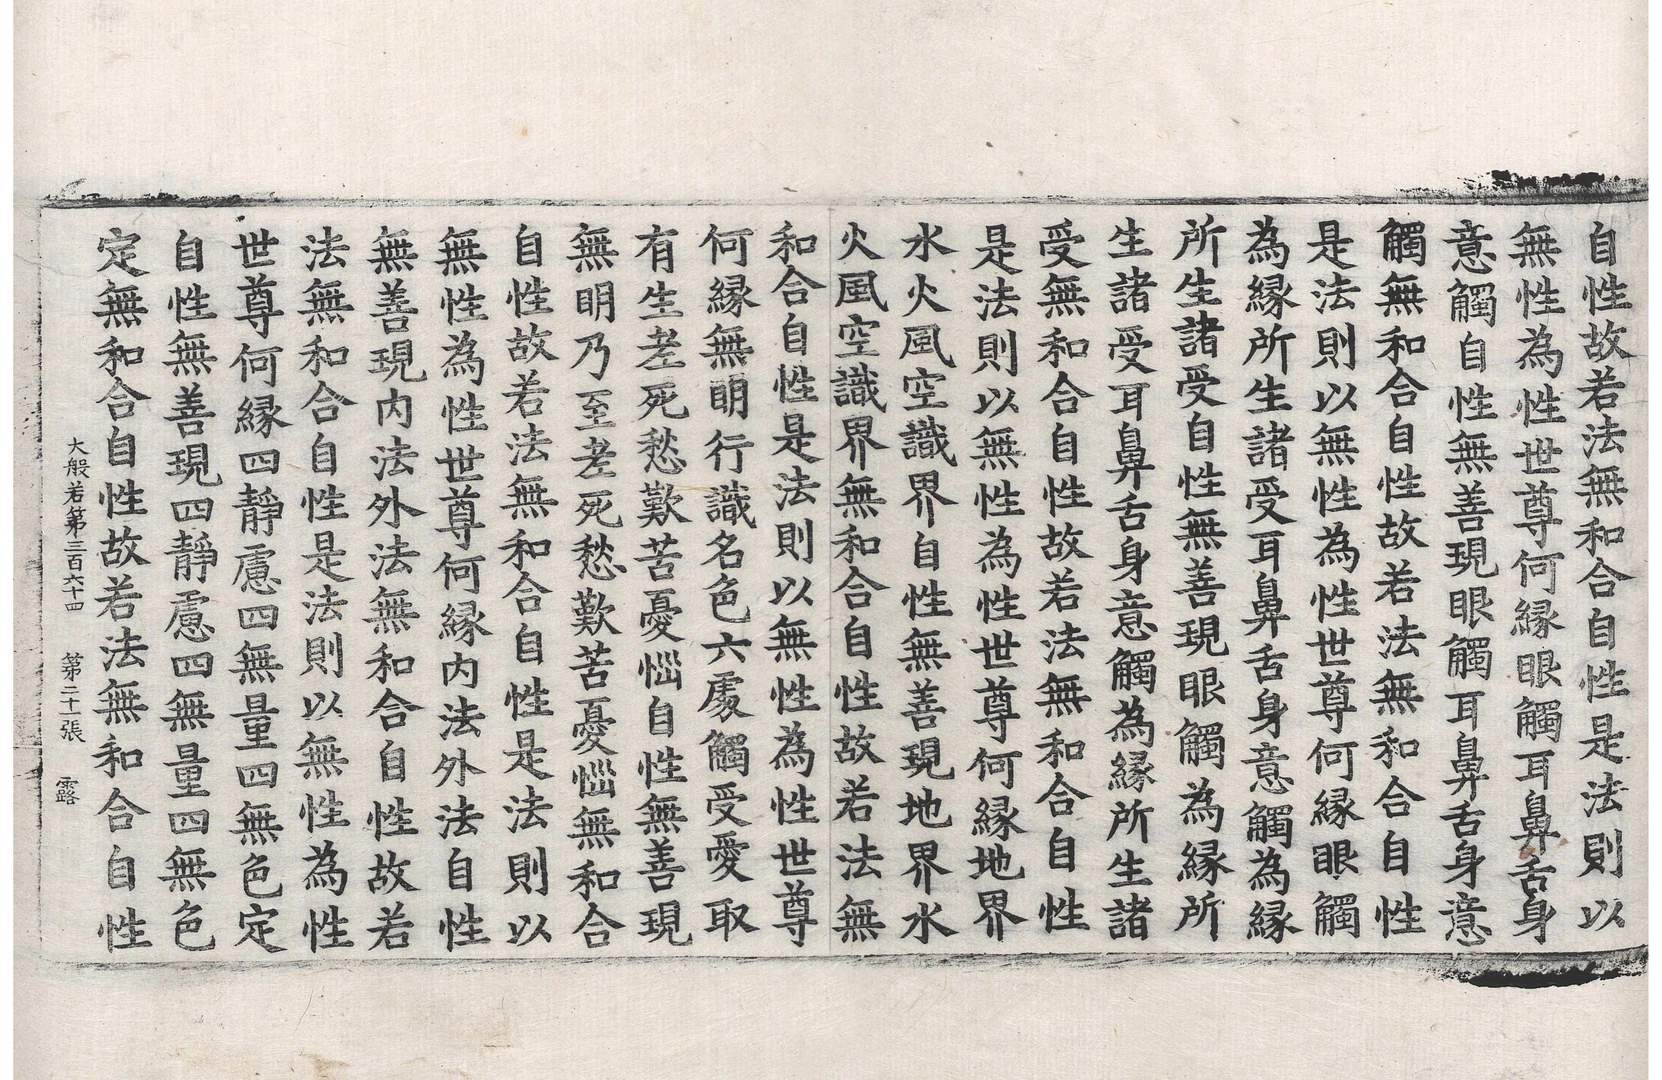 自性故若法無和合自性是法則以
無性為性世尊何縁眼觸耳鼻舌身
意觸自性無善現眼觸耳鼻舌身意
觸無和合自性故若法無和合自性
是法則以無性為性世尊何縁眼觸
為縁所生諸受耳鼻舌身意觸為縁
所生諸受自性無善現眼觸為縁所
生諸受耳鼻舌身意觸為縁所生諸
受無和合自性故若法無和合自性
是法則以無性為性世尊何縁地界
水火風空識界自性無善現地界水
火風空識界無和合自性故若法無
和合自性是法則以無性為性世尊
何縁無明行識名色六處觸受愛取
有生老死愁歎苦憂惱自性無善現
無明乃至老死愁歎苦憂惱無和合
自性故若法無和合自性是法則以
無性為性世尊何縁內法外法自性
無善現內法外法無和合自性故若
法無和合自性是法則以無性為性
世尊何縁四靜慮四無量四無色定
自性無善現四靜慮四無量四無色
定無和合自性故若法無和合自性
大般若第三百六十四 第二十張 露